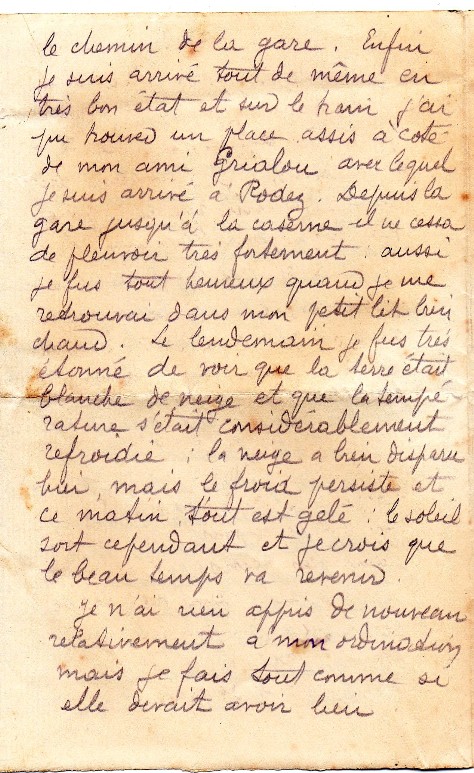 le chemin de la gare. Enfin
je suis arrivé tout de même en
très bon état et sur le train j'ai
pu trouver un place assis à coté
de mon ami Grialou avec lequel
je suis arrivé à Rodez. Depuis la
gare jusqu'à la caserne il ne cessa
de pleuvoir très fortement : aussi
je fus tout heureux quand je me
retrouvai dans mon petit lit bien
chaud. Le lendemain je fus très
étonné de voir que la terre était
blanche de neige et que la tempé
rature s'était considérablement
refroidie ; la neige a bien disparu
hier, mais le froid persiste et
ce matin, tout est gelé : le soleil
sort cependant et je crois que
le beau temps va revenir.
je n'ai rien appris de nouveau
relativement à mon ordination,
mais je fais tout comme si
elle devait avoir lieu